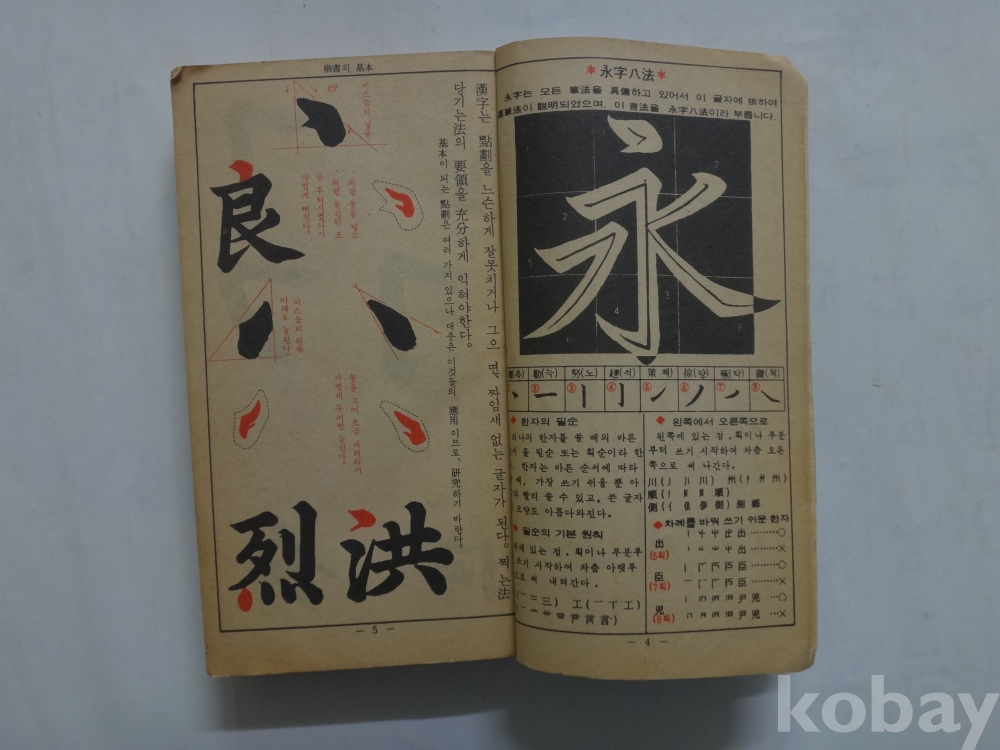 永字八法
永字는 모든 筆法을 具備하고 있어서 이 글자에 依하여
筆法이 説明되었으며, 이 書法을 永字八法이라 부릅니다.
永
7
2
5
1
4
3
6
8
勒(늑) 努(노) 趯(적) 策(책) 掠(략) 啄(탁) 磔(책)
② ③ ④ ⑤ ⑥ ⑦ ⑧
한자의 필순
하나의 한자를 쓸 때의 바른
을 필순 또는 획순이라 한
한자는 바른 순서에 따라
때, 가장 쓰기 쉬울 뿐 아
빨리 쓸 수 있고, 쓴 글자
모양도 아름다와진다.
필순의 기본 원칙
위에 있는 점, 획이나 부분부
쓰기 시작하여 차츰 아랫부
으로 써 내려간다.
三) 工(一 丅 工)
言)
왼쪽에서 오른쪽으로
왼쪽에 있는 점, 획이나 부분
부터 쓰기 시작하여 차츰 오른
쪽으로 써 나간다.
川(丿 川) 州(州)
順( 順)
側( 側) 測 鄕
차례를 바꿔 쓰기 쉬운 한자
出 (5획)
臣 (7획)
児 (8획)
— 4 —
楷書의 基本
漢字는 點劃을 느슨하게 잘못치거나 그으면, 짜임새 없는 글자가 된다. 찍는法
당기는法의 要領을 充分하게 익혀야한다.
基本이 되는 點劃은 여러 가지 있으나 대충은 이것들의 應用이므로, 研究하기 바란다.
45°
비스듬히
良
비스듬히 왼쪽
아래로
붓을 그어 조금 내려와서
가볍게
洪
烈
— 5 —
kobay